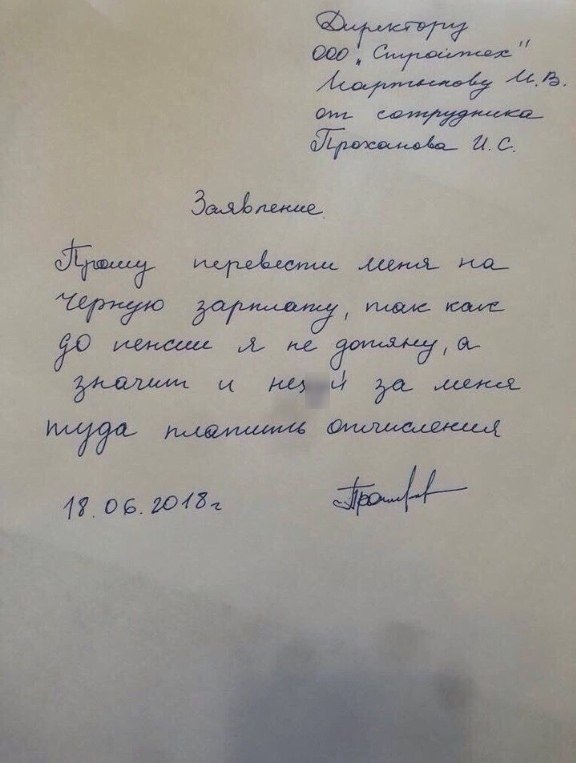 Директору
ООО „Стройтех"
Мартынову И.В.
от сотрудника
Проханова И.С.
Заявление
Прошу перевести меня на
черную зарплату, так как
до пенсии я не дотяну, а
значит и нех й за меня
туда платить отчисления
18.06.2018г